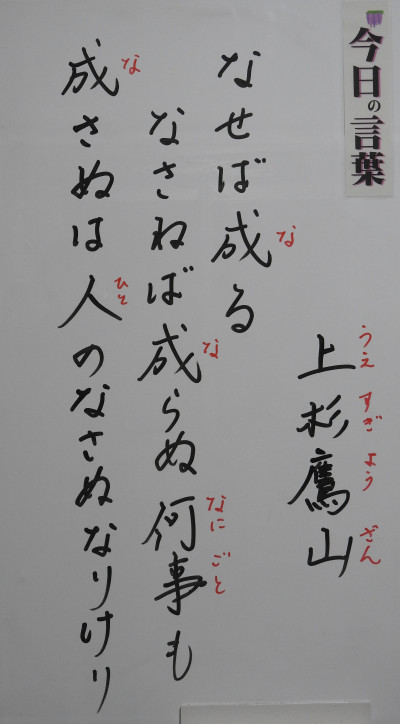 今日の言葉
上杉鷹山
うえすぎようざん
なせば成る
な
なさねば成らぬ何事も
な なにごと
成さぬは人のなさぬなりけり
な ひと